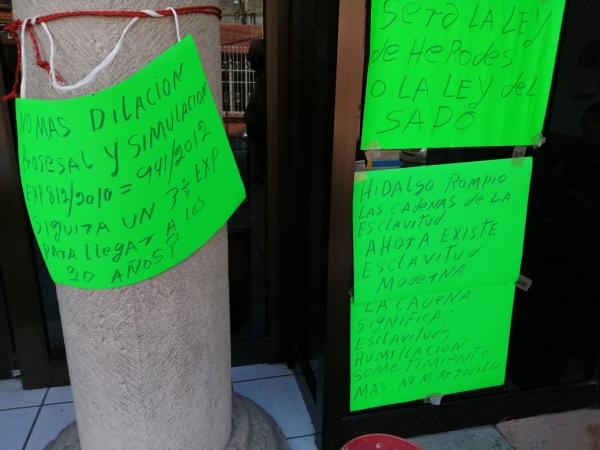 NO MAS DILACION
Prosesal Y SIMULACION
EXP 812/2010 = 941/2012
SIGUIRA UN 3º EXP
PARA llegar A los
20 AÑOS?
Sera LA LEY
de HeRodes
O LA LEY del
SAPO
HIDALGO ROMPIO
LAS CADENAS DE LA
ESCLAVITUD.
AHORA EXISTE
ESCLAVITUD
MODERNA
LA CADENA
SIGNIFICA:
Esclavitud,
HUMILLACION
SOMETIMIENTO
MAS NO M